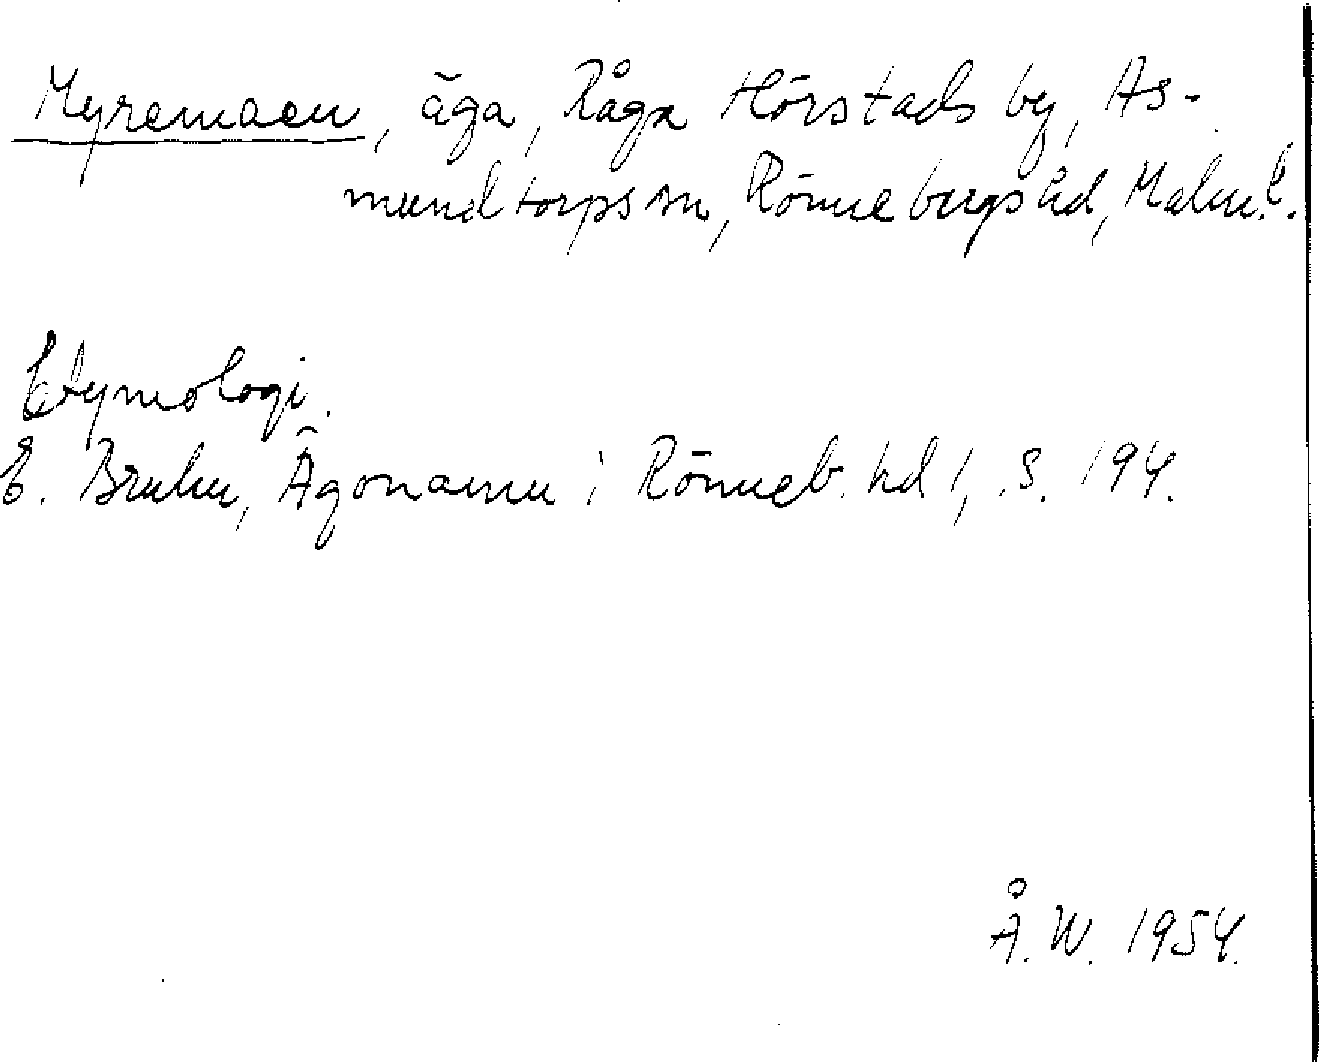 Myremaen, äga, Råga Hörstads by, As-
mundtorps sn, Rönnebergs hd, Malm. l.
Etymologi.
E. Bruhn, Ägonamn i Rönneb. hd 1, s. 194.
Å. W. 1954.